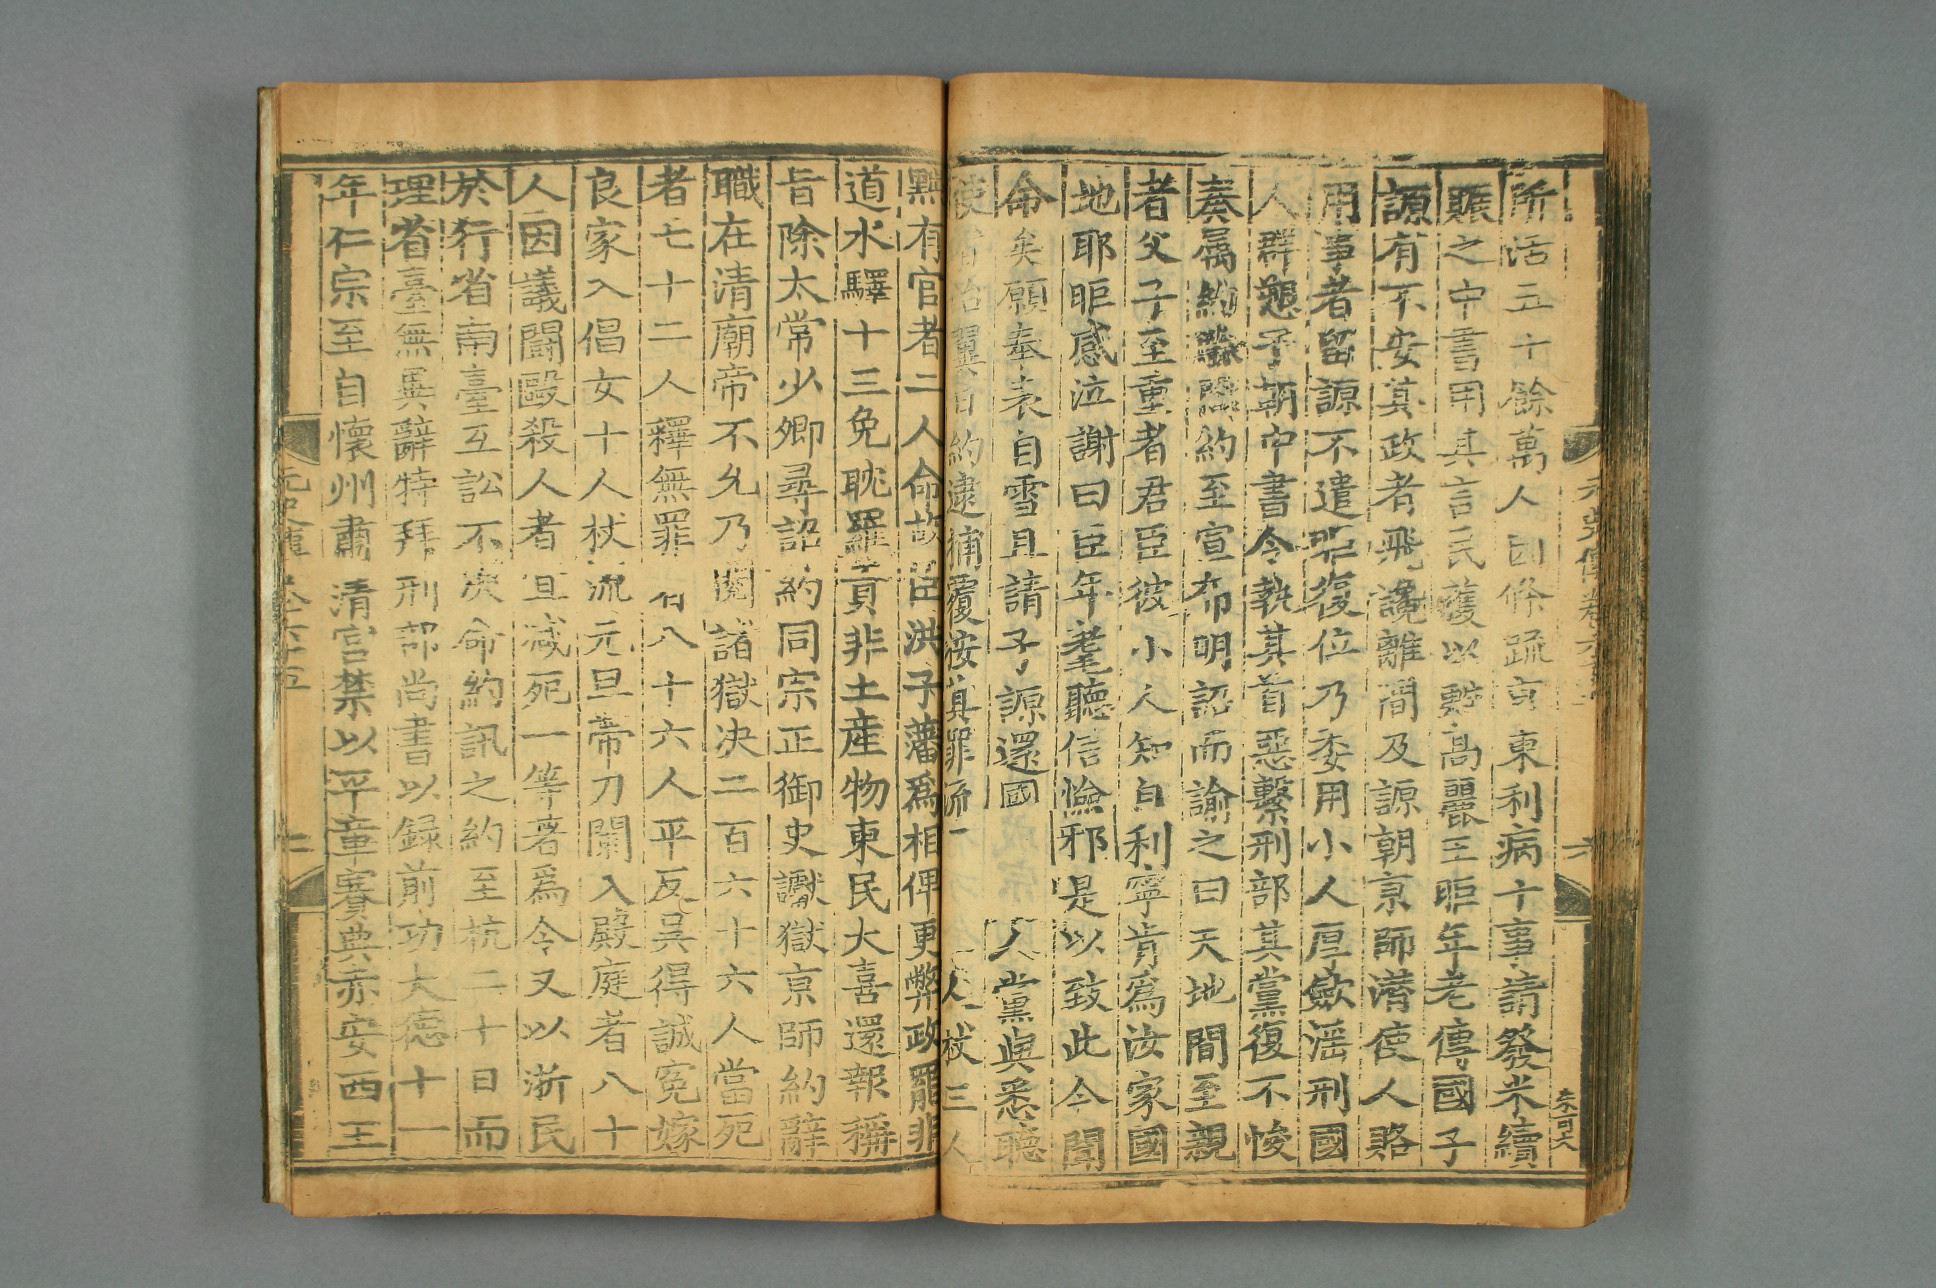 元史傳卷六十五
六
朱可大
所活五十餘萬人因條疏京東利病十事請發米續
賑之中書用其言民獲以甦高麗王昛年老傳國子
謜有不安其政者飛讒離間及謜朝京師潛使人賂
用事者留謜不遣昛復位乃委用小人厚斂淫刑國
人群愬于朝中書令執其首惡繫刑部其黨復不悛
奏屬約驗問約至宣布明詔而諭之曰天地間至親
者父子至重者君臣彼小人知自利寧肯爲汝家國
地耶昛感泣謝曰臣年耄聽信憸邪是以致此今聞
命矣願奉表自雪且請子謜還國 人黨與悉聽
使者治翼日約逮捕覆按其罪流一 人杖三人
黜有官者二人命故臣洪子藩爲相俾更弊政罷非
道水驛十三免耽羅貢非土産物東民大喜還報稱
旨除太常少卿尋詔約同宗正御史讞獄京師約辭
職在清廟帝不允乃閱諸獄決二百六十六人當死
者七十二人釋無罪 八十六人平反吴得誠冤嫁
良家入倡女十人杖流元旦帶刀闌入殿庭者八十
人因議鬪毆殺人者宜減死一等著爲令又以浙民
於行省南臺互訟不決命約訊之約至杭二十日而
理省臺無異辭特拜刑部尚書以録前功大德十一
年仁宗至自懷州肅清宮禁以平章賽典赤安西王
元史傳卷六十五